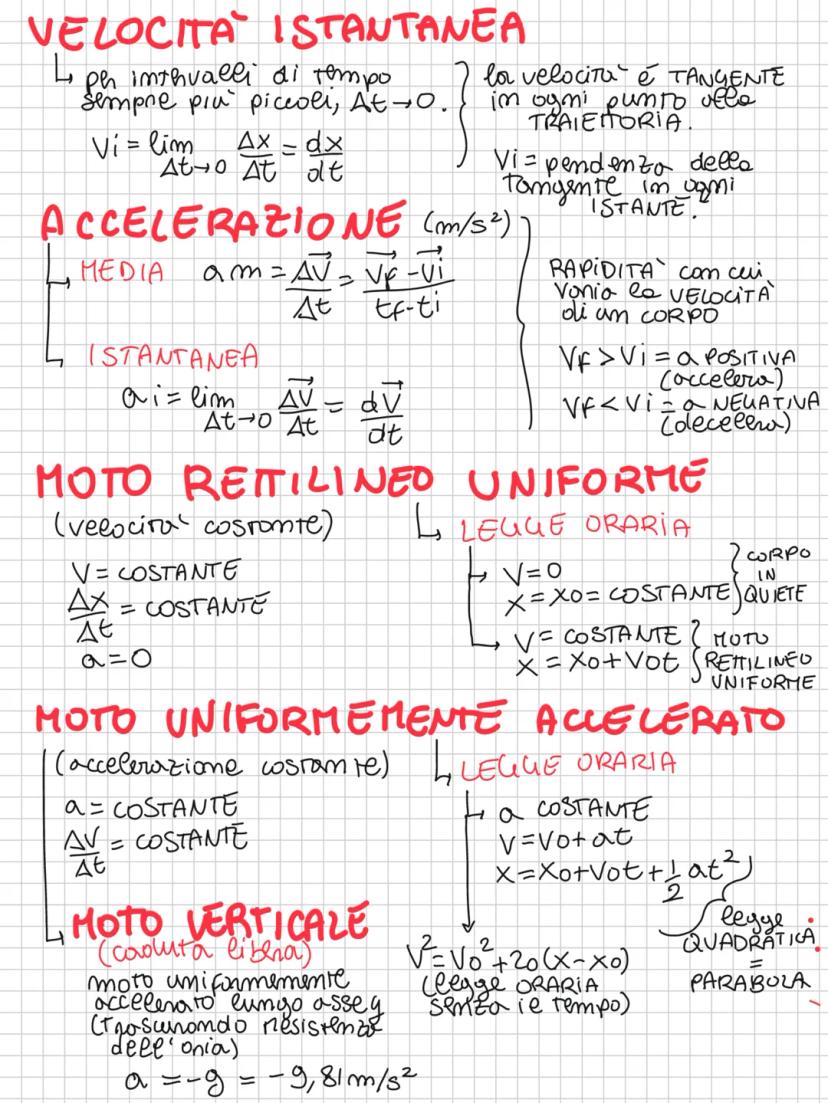 VELOCITÀ ISTANTANEA
↳ per intervalli di tempo
sempre più piccoli, Δt→0.
Vi = lim Δt→0 Δx/Δt = dx/dt
la velocità è TANGENTE
in ogni punto della
TRAIETTORIA.
Vi = pendenza della
tangente in ogni
ISTANTE.
ACCELERAZIONE (m/s²)
↳ MEDIA am = ΔV⃗/Δt = (V⃗f - V⃗i)/(tf - ti)
↳ ISTANTANEA
ai = lim Δt→0 ΔV⃗/Δt = dV⃗/dt
RAPIDITÀ con cui
varia la VELOCITÀ
di un CORPO
Vf > Vi = a POSITIVA
(accelera)
Vf < Vi = a NEGATIVA
(decelera)
MOTO RETTILINEO UNIFORME
(velocità costante)
V = COSTANTE
Δx/Δt = COSTANTE
a = 0
↳ LEGGE ORARIA
↳ V = 0
x = x0 = COSTANTE
CORPO
IN
QUIETE
↳ V = COSTANTE
x = x0 + V0t
MOTO
RETTILINEO
UNIFORME
MOTO UNIFORMEMENTE ACCELERATO
(accelerazione costante)
a = COSTANTE
ΔV/Δt = COSTANTE
↳ LEGGE ORARIA
↳ a COSTANTE
V = V0 + at
x = x0 + V0t + 1/2 at²
legge
QUADRATICA
=
PARABOLA
V² = V0² + 2a(x - x0)
(legge ORARIA
senza il tempo)
↳ MOTO VERTICALE
(caduta libera)
moto uniformemente
accelerato lungo asse y
(Trascurando resistenza
dell'aria)
a = -g = -9,81 m/s²